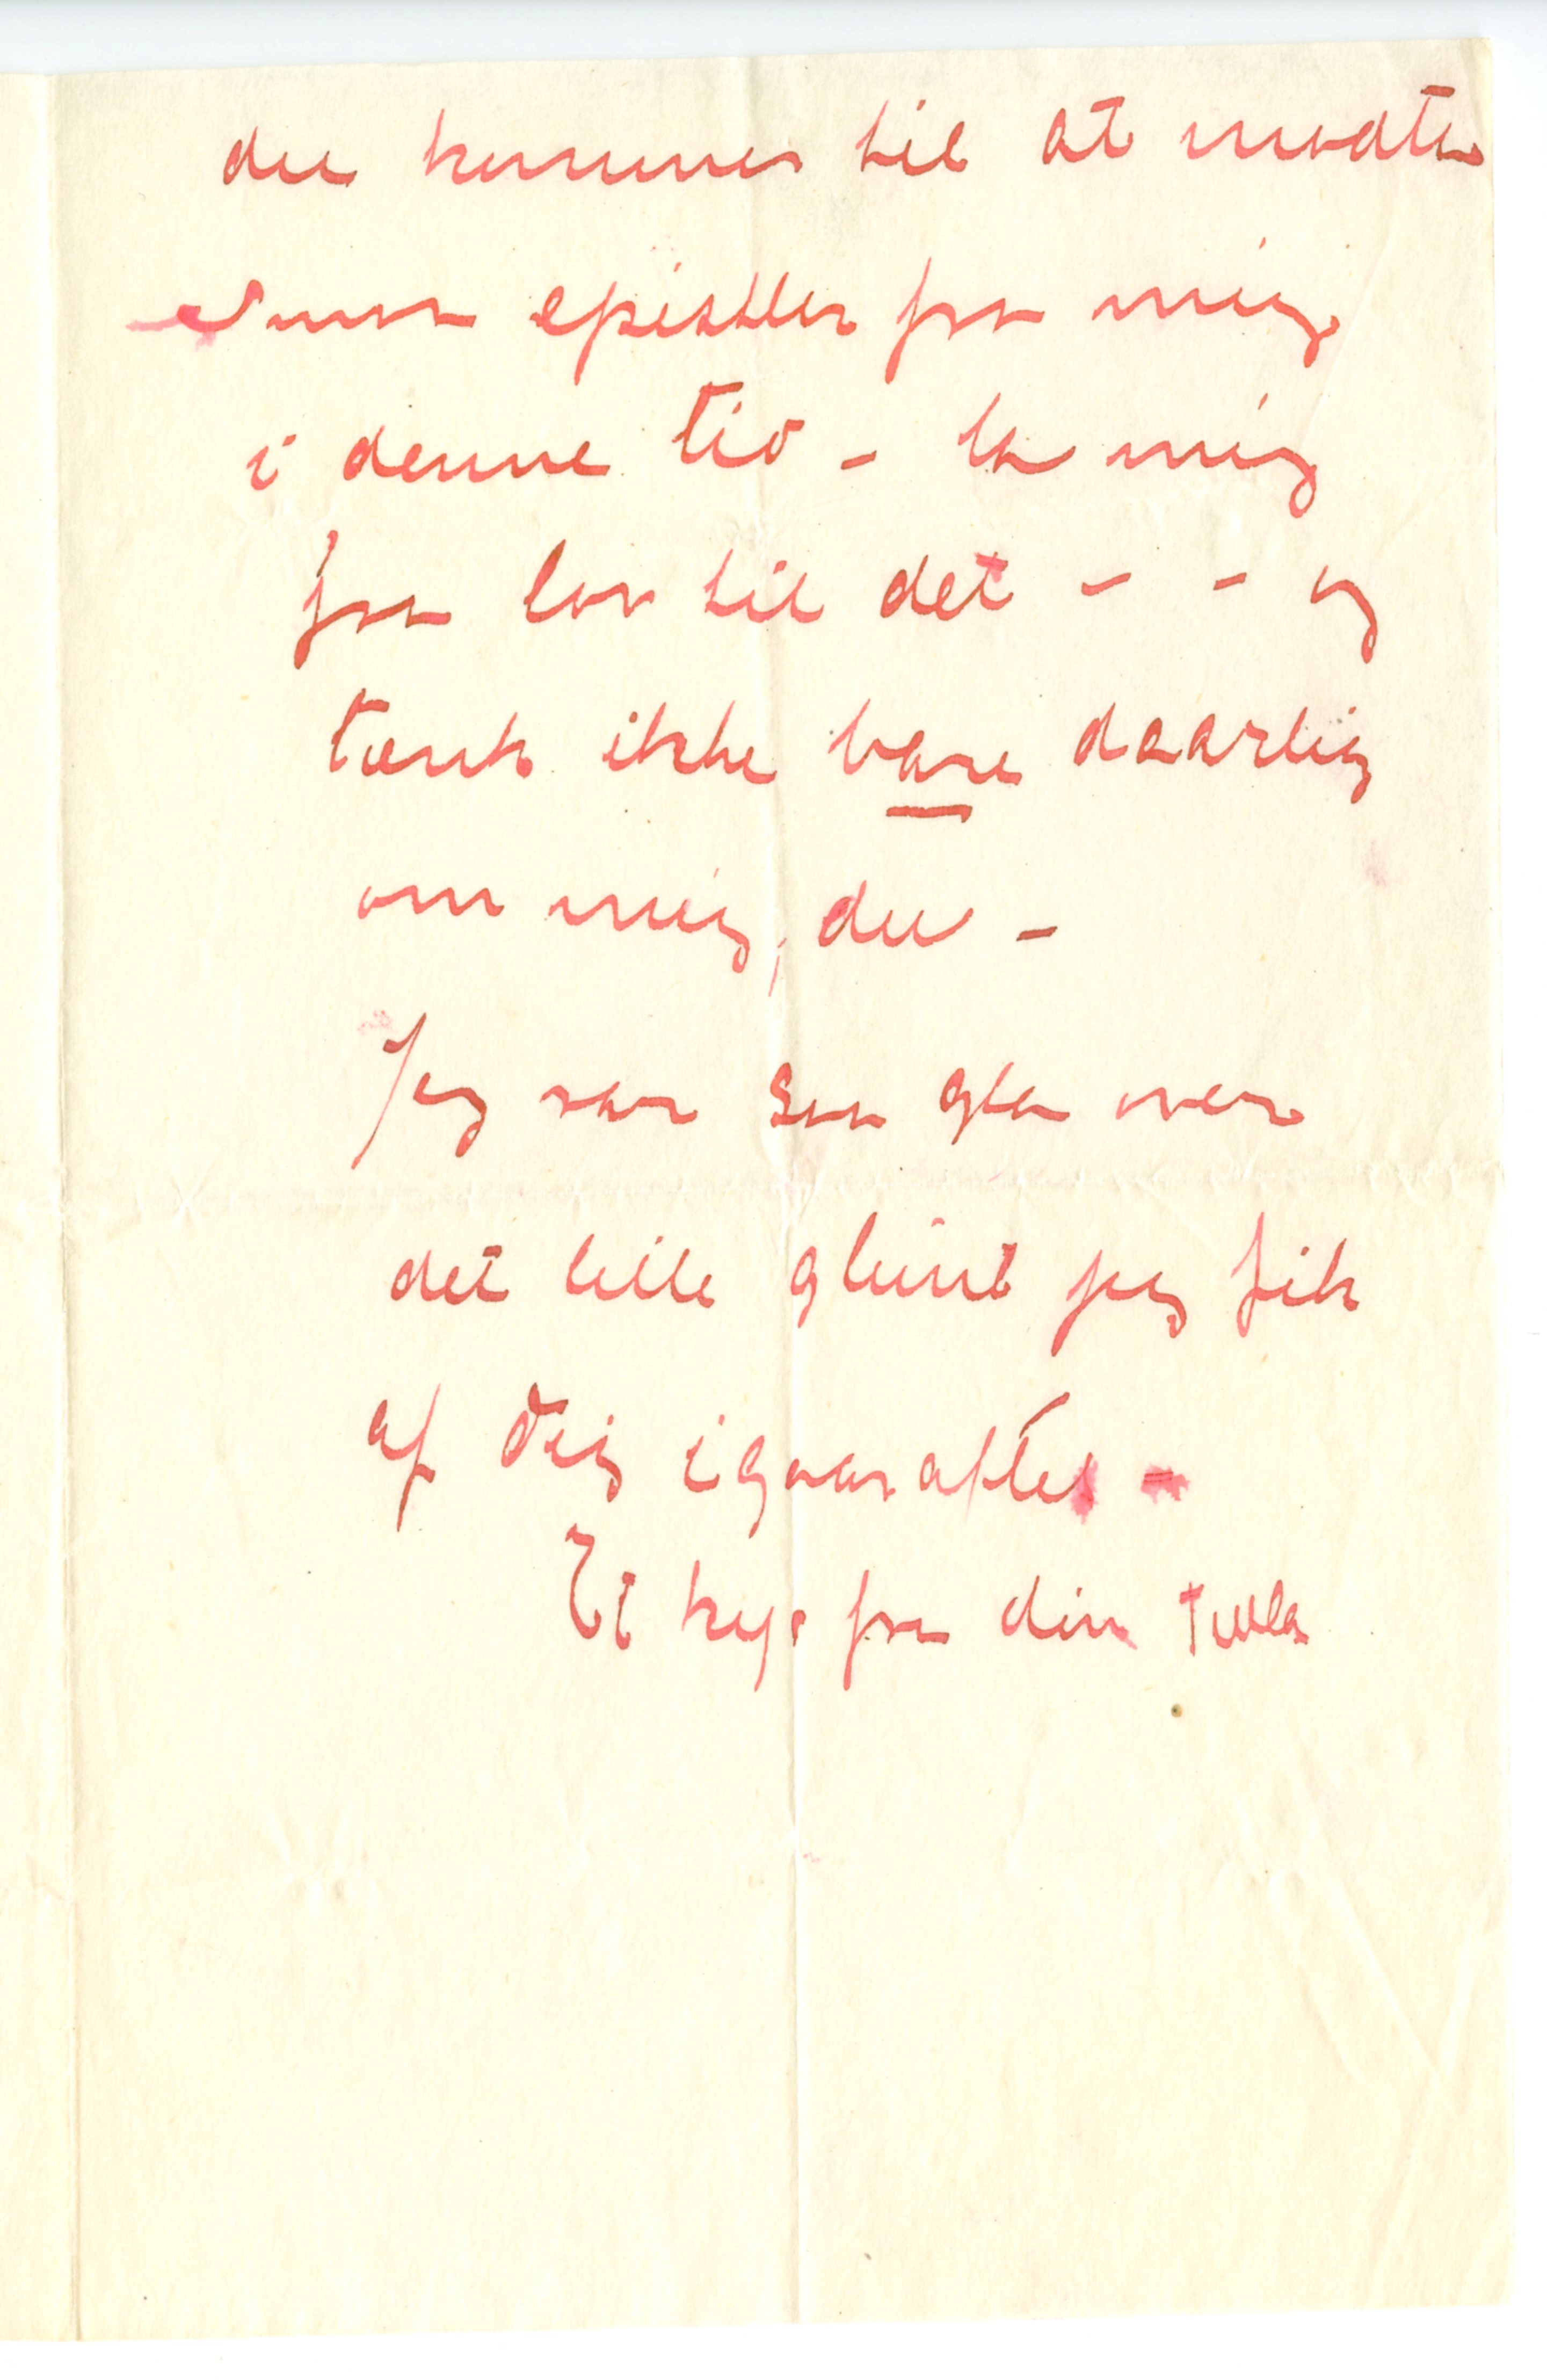 du kommer til at motta
smaa epistler fra mig
i denne tid - La mig
faa lov til det - - og
tænk ikke bare daarlig
om mig, du -
Jeg var saa gla over
det lille glimt jeg fik
af dig igaaraftes -
Et kys fra din Tulla